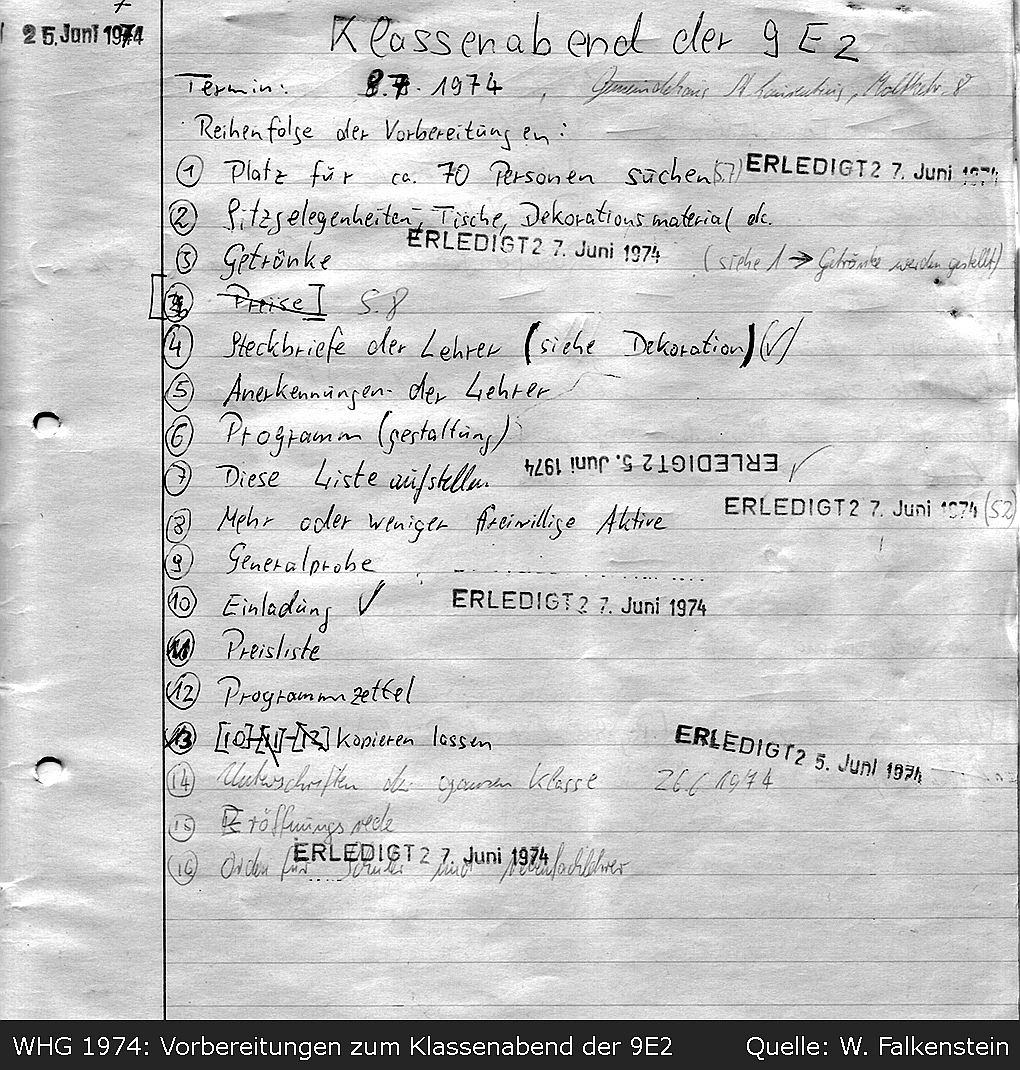 25. Juni 1974
Klassenabend der 9E2
Termin: 8.7. 1974, Gemeindehaus
Reihenfolge der Vorbereitungen:
1 Platz für ca. 70 Personen suchen (S7) ERLEDIGT 27. Juni 1974
2 Sitzgelegenheiten, Tische, Dekorationsmaterial etc.
ERLEDIGT 27. Juni 1974
3 Getränke (siehe 1 → Getränke werden gestellt)
[Preise] S. 8
4 Steckbriefe der Lehrer (siehe Dekoration) (√)
5 Anerkennungen der Lehrer
6 Programm (gestaltung)
7 Diese Liste aufstellen ERLEDIGT 25. Juni 1974 √
8 Mehr oder weniger freiwillige Aktive ERLEDIGT 27. Juni 1974 (S2)
9 Generalprobe
10 Einladung √ ERLEDIGT 27. Juni 1974
11 Preisliste
12 Programmzettel
13 [10]-[11]-[12] kopieren lassen ERLEDIGT 25. Juni 1974
14 Unterschriften der ganzen Klasse 26.6 1974
15 Eröffnungsrede
ERLEDIGT 27. Juni 1974
16 Orden für Schüler und Nebenfachlehrer
WHG 1974: Vorbereitungen zum Klassenabend der 9E2 Quelle: W. Falkenstein